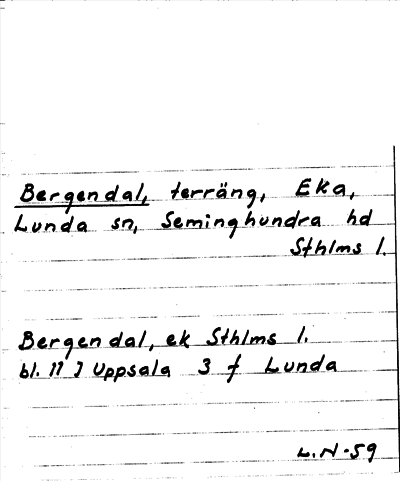 Bergendal, terräng, Eka,
Lunda sn, Seminghundra hd
Sthlms l.
Bergendal, ek Sthlms l.
bl. 11 I Uppsala 3 f Lunda
L.N-59